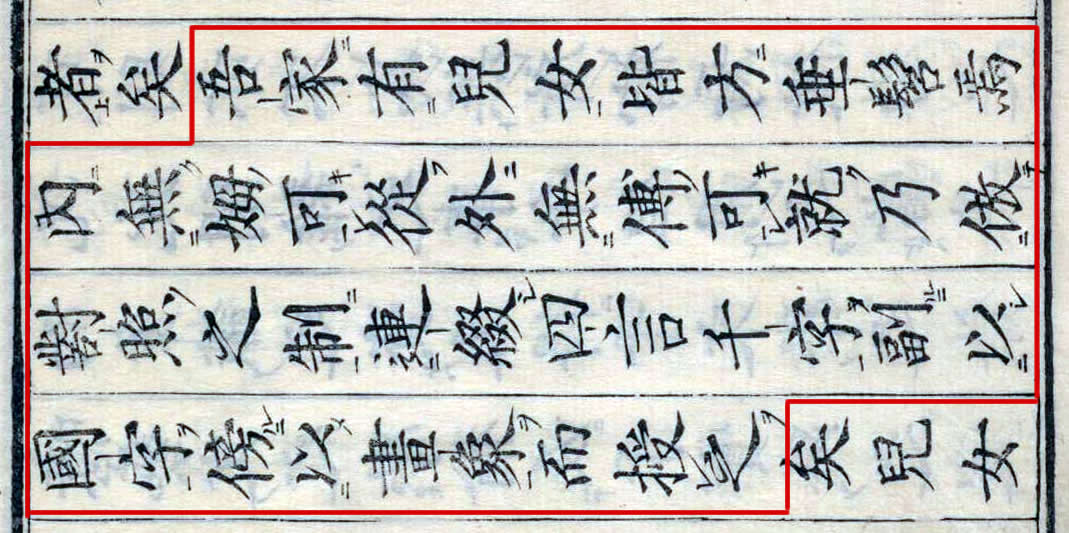 者矣吾家有兒女皆方垂髫焉
内無姆可從外無傅可就乃倣
對照之制連綴四言千字副以
國字傍以畫象而授之矣兒女